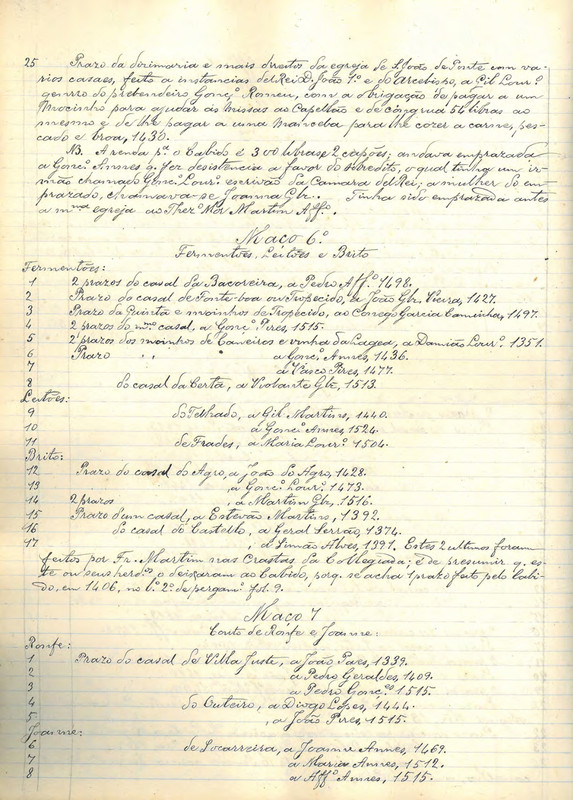 25 Prazo da dizimaria e mais direitos da egreja de S. João de Ponte com va-
rios casaes, feito a instancias del Rei D. João 1º e do arcebispo, a Gil Lour.º
genrro do prebendeiro Gonç.º Romeu, com a obrigação de pagar a um
Mocinho para ajudar ás missas ao Capellão e de congrua 54 libras ao
mesmo e de lhe pagar a uma manceba para lhe cozer a carne, pes-
cado e broa, 1430.
NB. A renda p.ª o Cabido é 300 libras e 2 capões; andava emprazada
a Gonç.º Annes q. fez desistencia a favor do sobredito, o qual tinha um ir-
mão chamado Gonç. Lour.º escrivão da Camara del Rei; a mulher do em-
prazado, chamava-se Joanna Glz. Tinha sido emprazada antes
a m.ma egreja ao Thez.º Mór Martim Aff.º.
Maço 6º
Fermentões, Leitões e Brito
Fermentões:
1 2 prazos do casal da Bacoreira, a Pedro Aff.º 1498.
2 Prazo do casal de Fonte-boa ou Tropecido, a João Glz. Vieira, 1427.
3 Prazo da Quinta e moinhos de Tropecido, ao Conego Garcia Caminha, 1497.
4 2 prazos do m.mo casal, a Gonç.º Pires, 1515.
5 2 prazos dos moinhos de Caneiros e vinha da Lagea, a Damião Lour.º 1351.
6 Prazo , , a Gonç. Annes, 1436.
7 a Vasco Pires, 1477.
8 do casal da Certa, a Violante Glz, 1513.
Leitões:
9 do Telhado, a Gil Martins, 1440.
10 a Gonç.º Annes, 1524.
11 de Frades, a Maria Lour.º 1504.
Brito:
12 Prazo do casal do Agro, a João do Agro, 1428.
13 , a Gonç.º Lour.º 1473.
14 2 prazos , a Martim Glz, 1516.
15 Prazo d'um casal, a Estevão Martins, 1392.
16 do casal do Castello, a Geral Serrão, 1374.
17 , a Simão Alves, 1391. Estes 2 ultimos foram
feitos por Fr. Martim nas Crastas da Collegiada; é de presumir q. es-
te ou seus herd.os o deixaram ao Cabido, porq. se acha 1 prazo feito pelo Cabi-
do, en 1406, no L.º 2.º de pergam.º fol. 9.
Maço 7
Couto de Ronfe e Joanne:
Ronfe:
1 Prazo do casal de Villa Juste, a João Paes, 1339.
2 a Pedro Geraldes, 1409.
3 a Pedro Gonç.es 1515.
4 do Outeiro, a Diogo Lopes, 1444.
5 , a João Pires, 1515.
Joanne:
6 de Socarreira, a Joanne Annes, 1469.
7 a Maria Annes, 1512.
8 a Aff.º Annes, 1515.